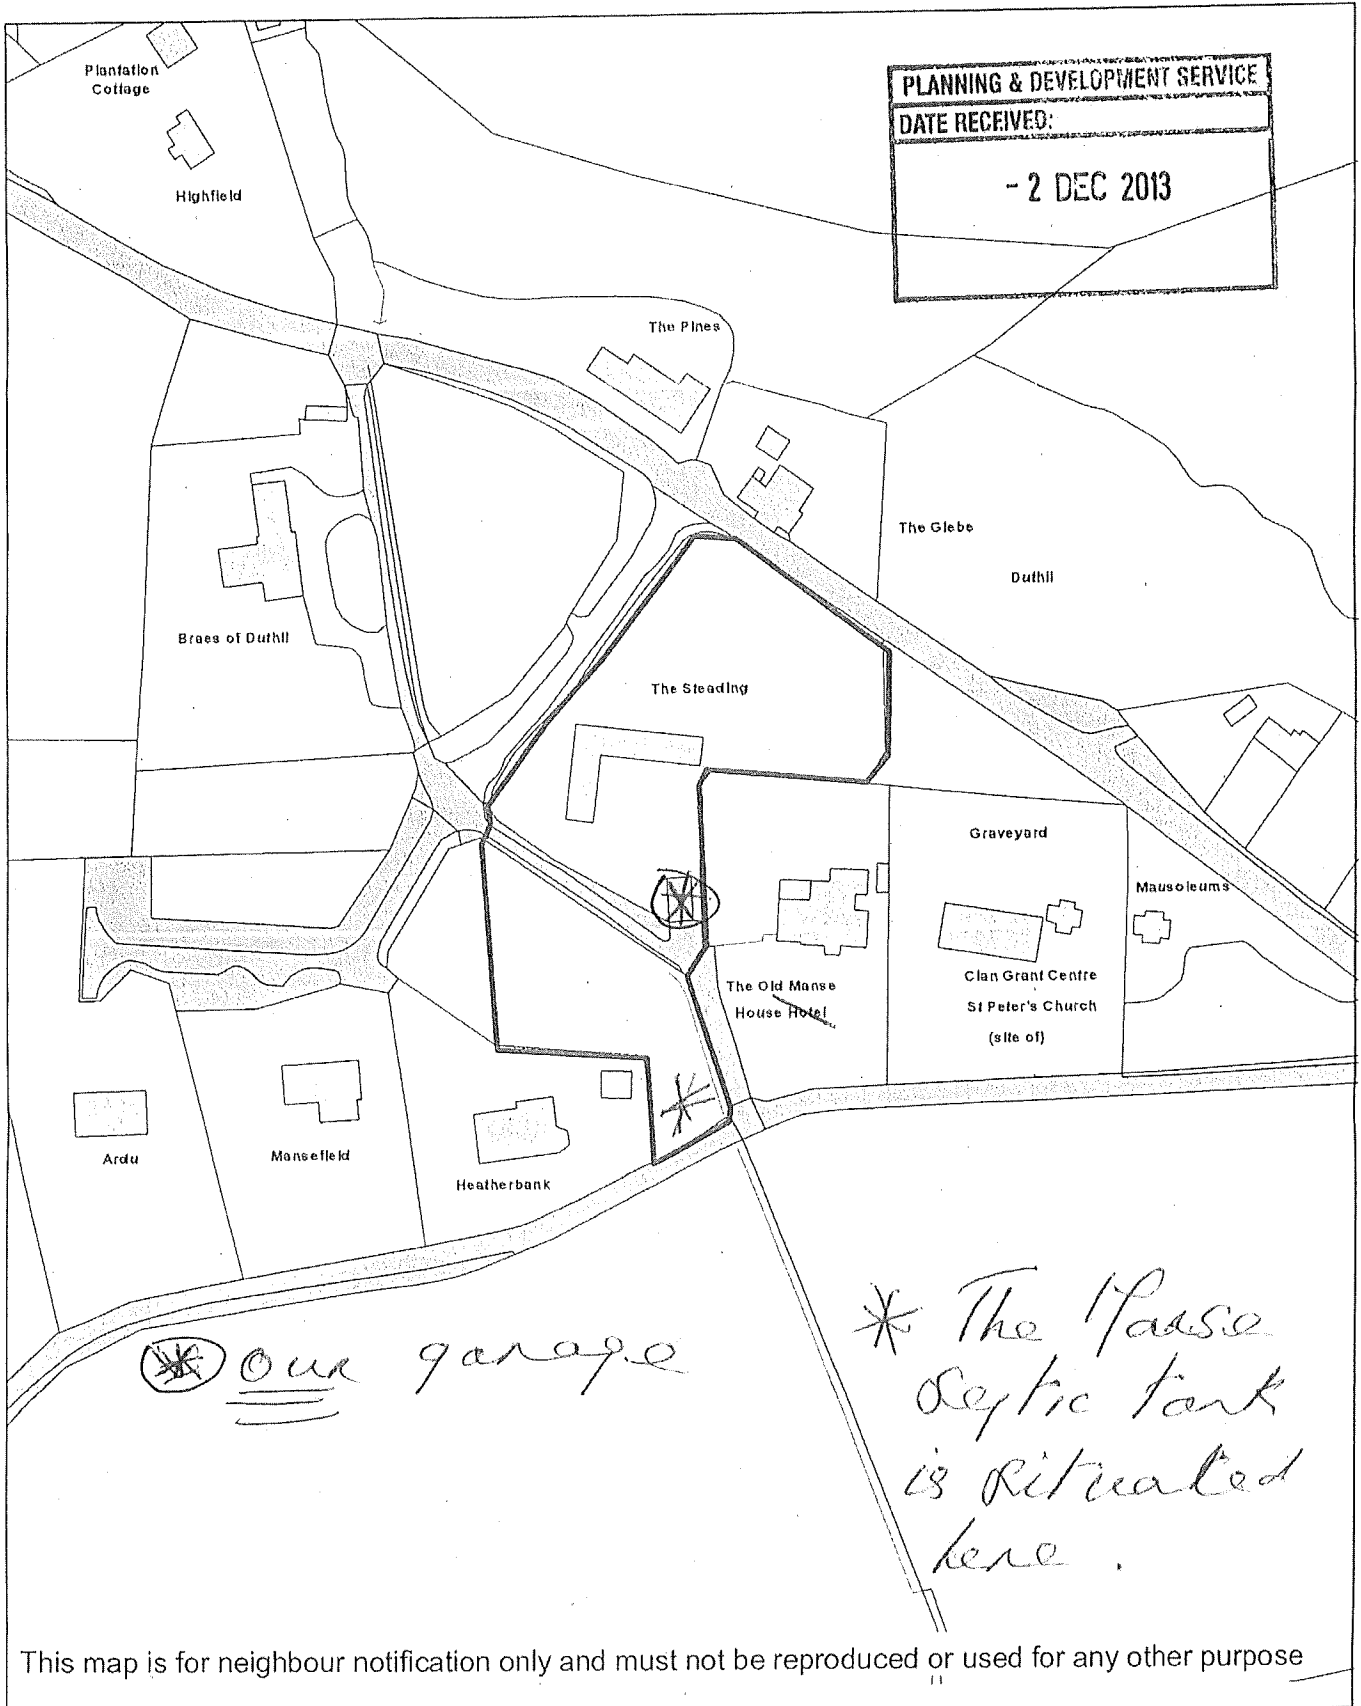 Plantation
Cottage
PLANNING & DEVELOPMENT SERVICE
DATE RECEIVED:
- 2 DEC 2013
Highfield
The Pines
The Glebe
Duthil
Braes of Duthil
The Steading
Graveyard
Mausoleums
The Old Manse
House Hotel
Clan Grant Centre
St Peter's Church
(site of)
Ardu
Mansefield
Heatherbank
Our garage
* The Manse
Septic tank
is situated
here.
This map is for neighbour notification only and must not be reproduced or used for any other purpose